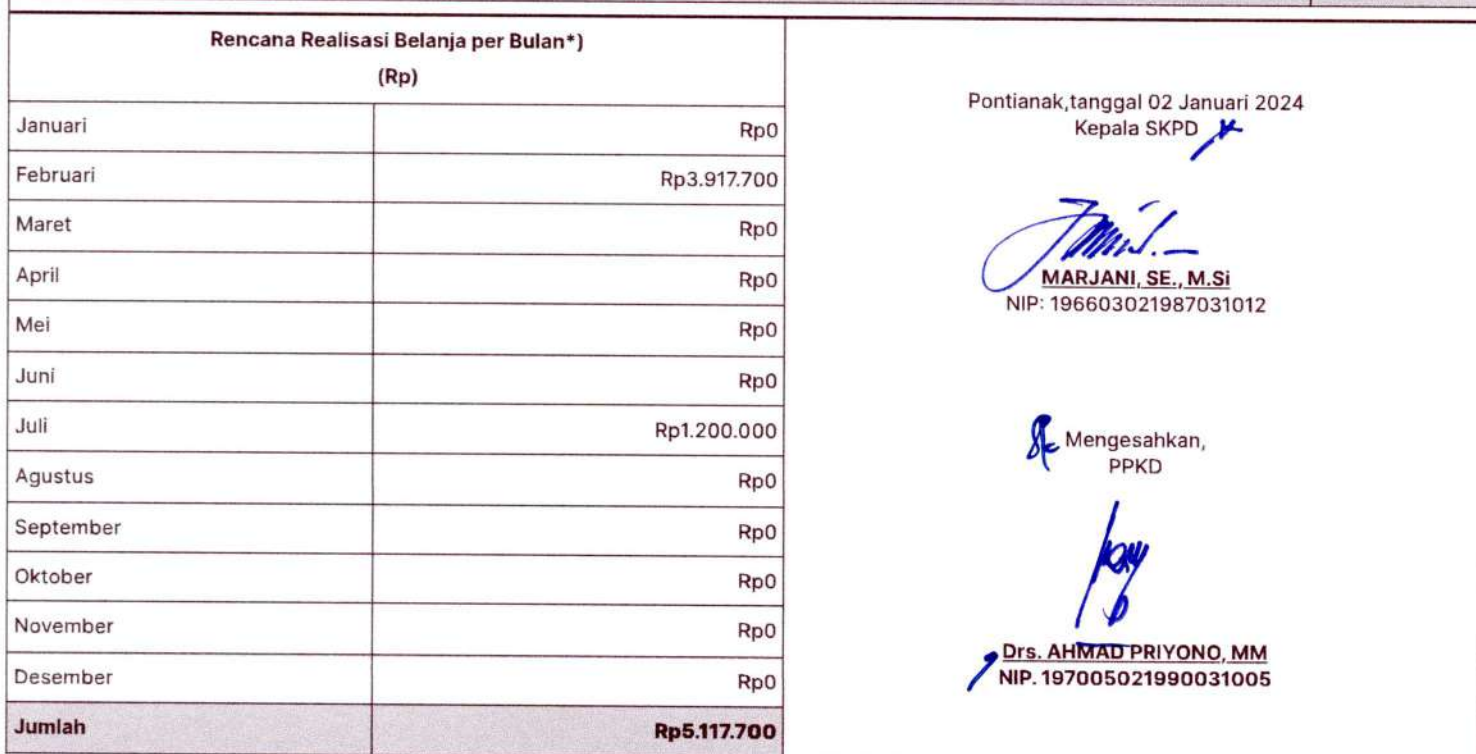 Rencana Realisasi Belanja per Bulan*)
(Rp)
Januari Rp0
Februari Rp3.917.700
Maret Rp0
April Rp0
Mei Rp0
Juni Rp0
Juli Rp1.200.000
Agustus Rp0
September Rp0
Oktober Rp0
November Rp0
Desember Rp0
Jumlah Rp5.117.700
Pontianak,tanggal 02 Januari 2024
Kepala SKPD
MARJANI, SE., M.Si
NIP: 196603021987031012
Mengesahkan,
PPKD
Drs. AHMAD PRIYONO, MM
NIP. 197005021990031005